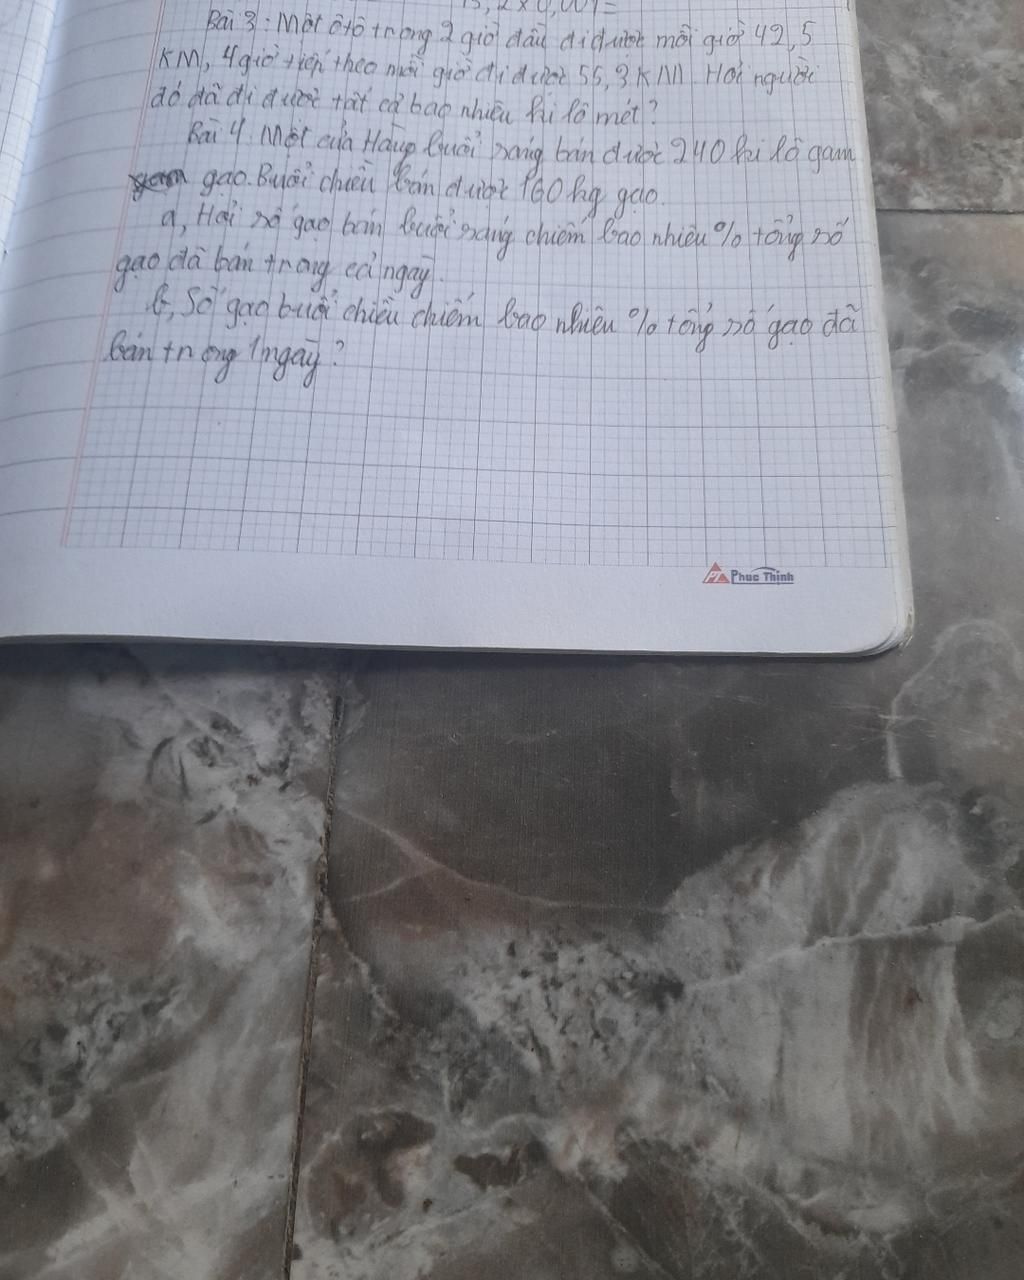 13,2 x 0,001 =
Bài 3: Một ô tô trong 2 giờ đầu đi được mỗi giờ 42,5
KM, 4 giờ tiếp theo mỗi giờ đi được 55,3 KM. Hỏi người
đó đã đi được tất cả bao nhiêu ki lô mét?
Bài 4. Một cửa Hàng buổi sáng bán được 240 ki lô gam
gạo. Buổi chiều bán được 160 kg gạo.
a, Hỏi số gạo bán buổi sáng chiếm bao nhiêu % tổng số
gạo đã bán trong cả ngày.
b, Số gạo buổi chiều chiếm bao nhiêu % tổng số gạo đã
bán trong 1 ngày?
PT Phuc Thinh